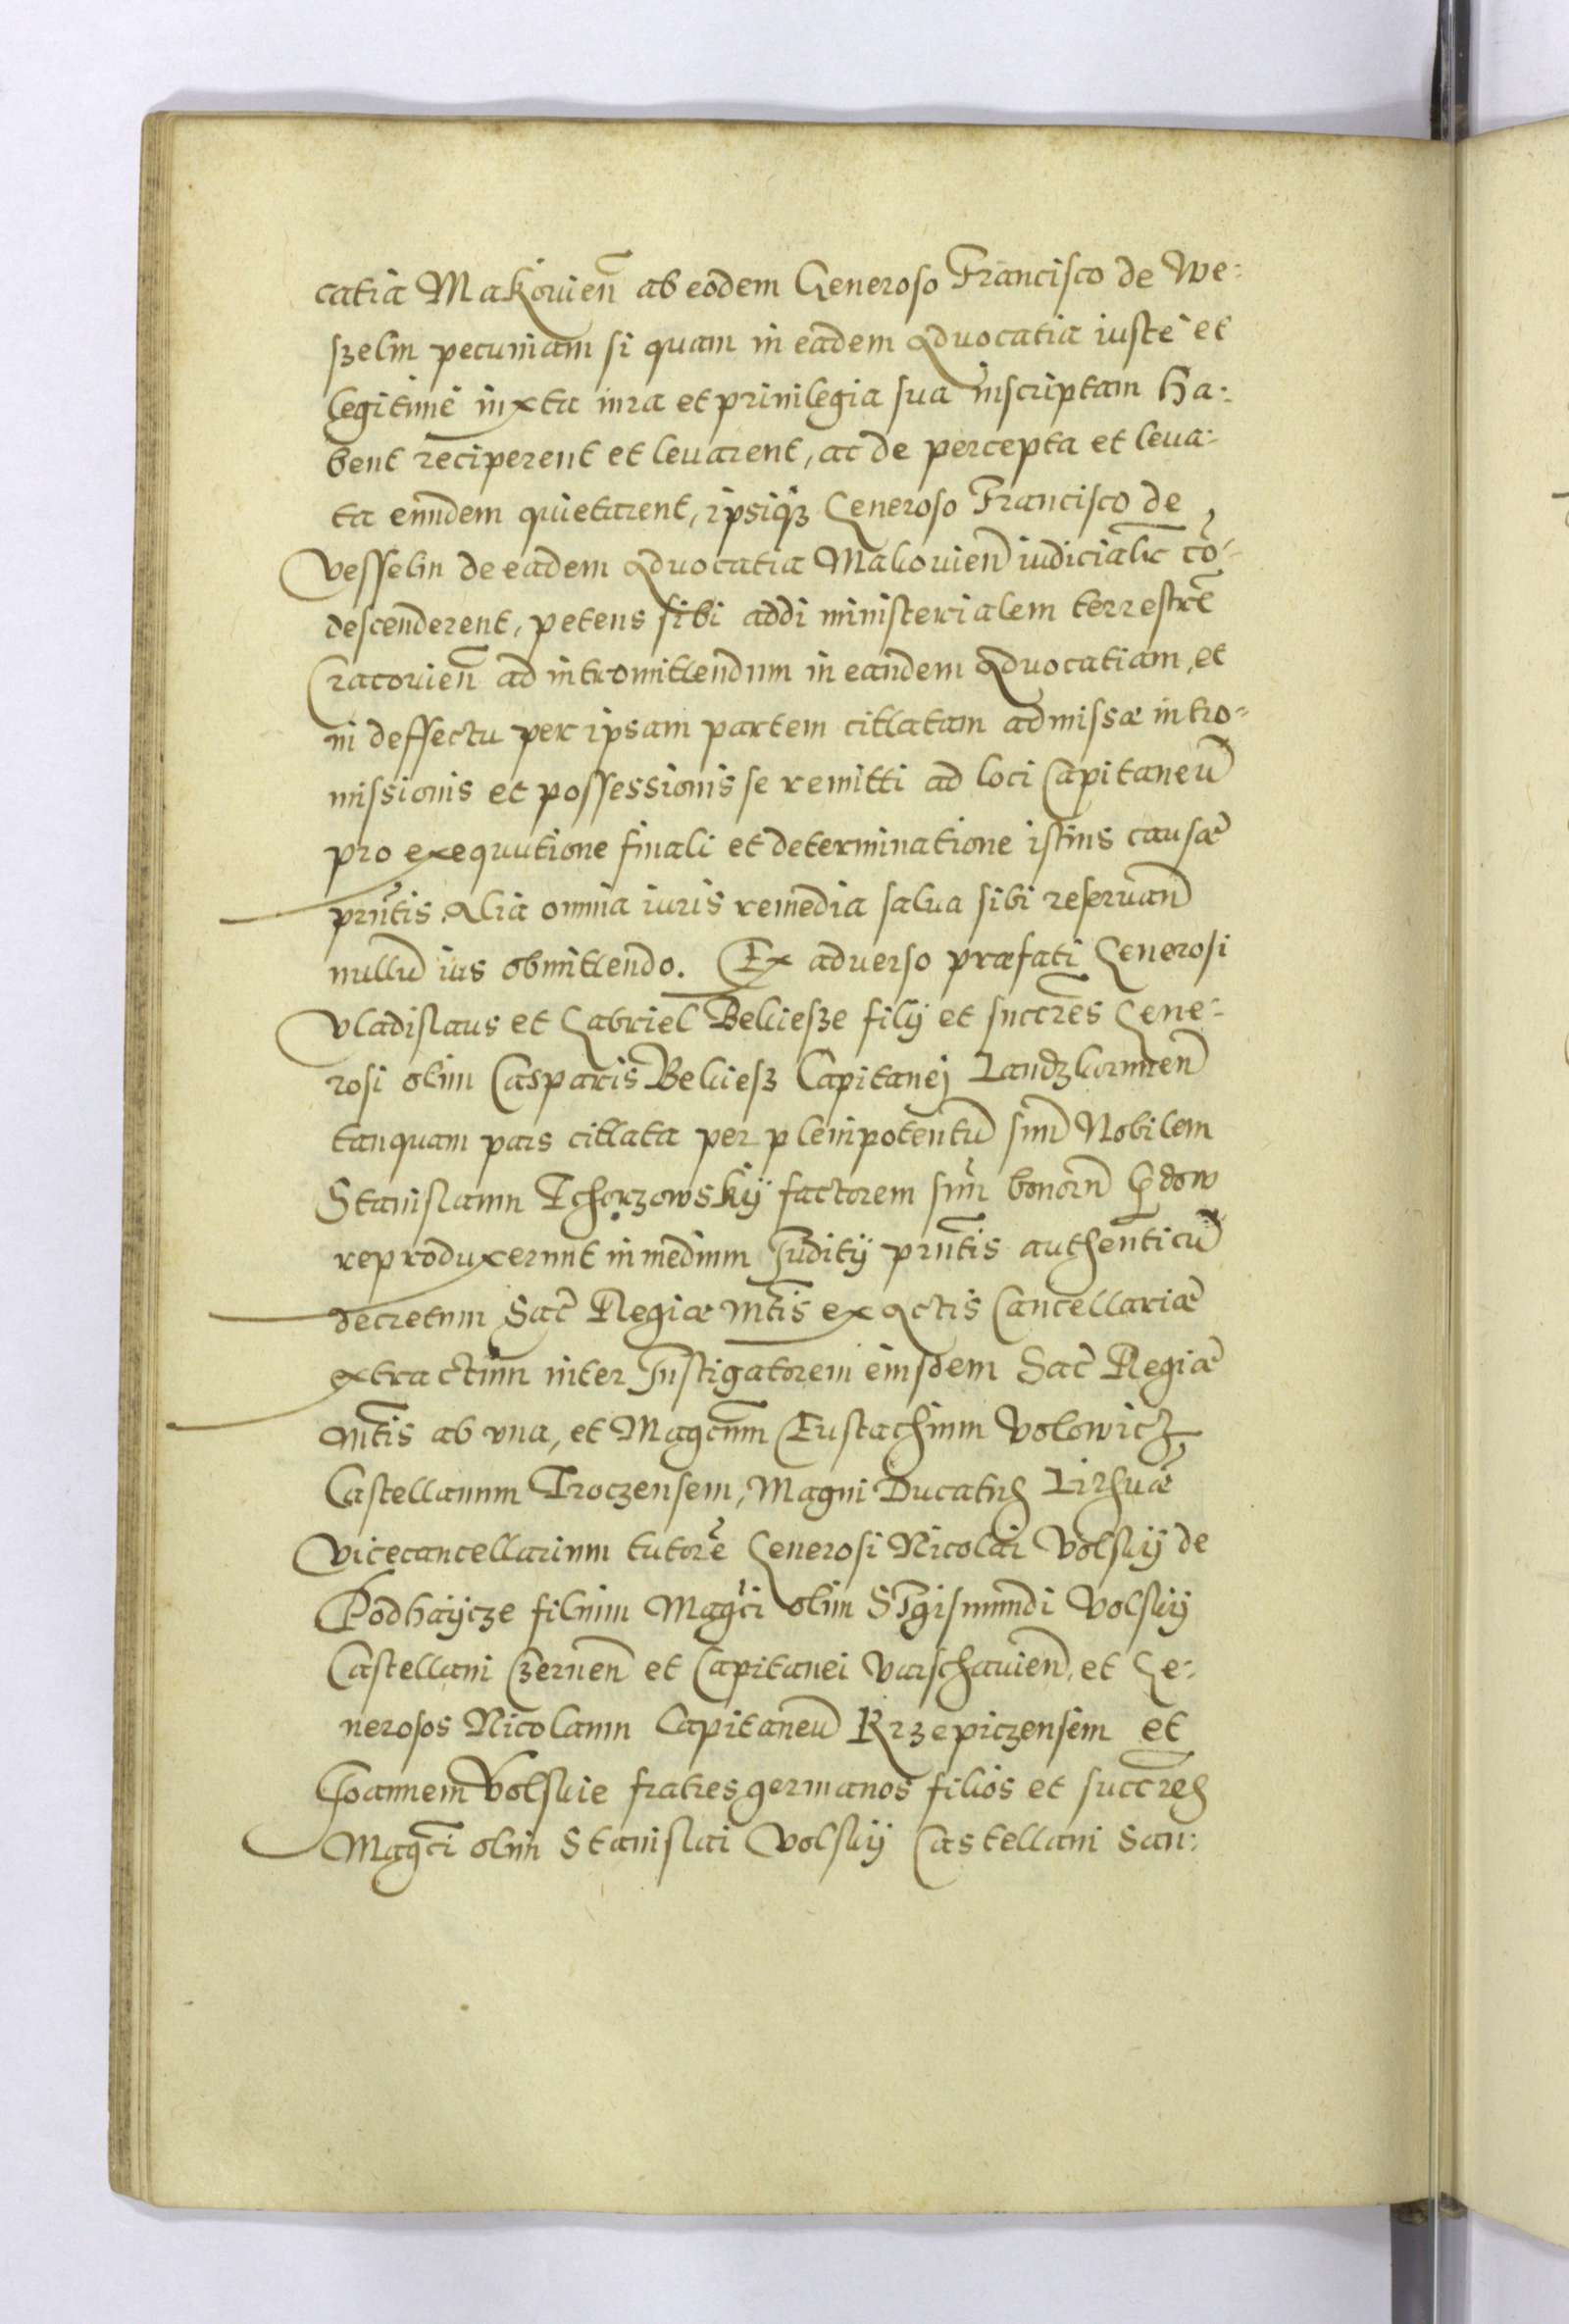 catia Makouien̄ ab eodem Generoso Francisco de We:
szelin pecuniam si quam in eadem Aduocatia iuste et
legitime iuxta iura et priuilegia sua inscriptam ha:
bent reciperent et leuarent, ac de percepta et leua:
ta eundem quietarent, ipsiq́ꝫ Generoso Francisco de
Vesselin de eadem Aduocatia Makouien̄ iudicialr̄ cō:
descenderent, petens sibi addi ministerialem terrestrē
Cracouien̄ ad intromittendum in eandem Aduocatiam, et
in deffectu per ipsam partem cittatam admissæ intro:
missionis et possessionis se remitti ad loci Capitaneū
pro exequutione finali et determinatione istius causæ
prn̄tis. Alia omnia iuris remedia salua sibi reseruan̄
nullū ius obmittendo. Ex aduerso præfati Generosi
Vladislaus et Gabriel Bekiesze filij et succr̄es Gene:
rosi olim Casparis Bekiesz Capitanei Landzkorunen̄
tanquam pars cittata per plenipotentū suū Nobilem
Stanislaum Tchorzowskij factorem suū bonorū Gdow
reproduxerunt in medium Juditij prn̄tis authenticū
decretum Sac̄ Regiæ Mt̄is ex Actis Cancellariæ
extractum inter Instigatorem eiusdem Sac̄ Regiæ
Mt̄is ab vna, et Magc̄um Eustachium Volowicz
Castellanum Troczensem, Magni Ducatus Lithuæ
Vicecancellarium tutorē Generosi Nicolai Volskij de
Podhaijcze filium Magc̄i olim Sigismundi Volskij
Castellani Czernen̄ et Capitanei Varschauien̄, et Ge:
nerosos Nicolaum Capitaneū Krzepiczensem et
Joannem Volskie fratres germanos filios et succr̄es
Magc̄i olim Stanislai Volskij Castellani San: